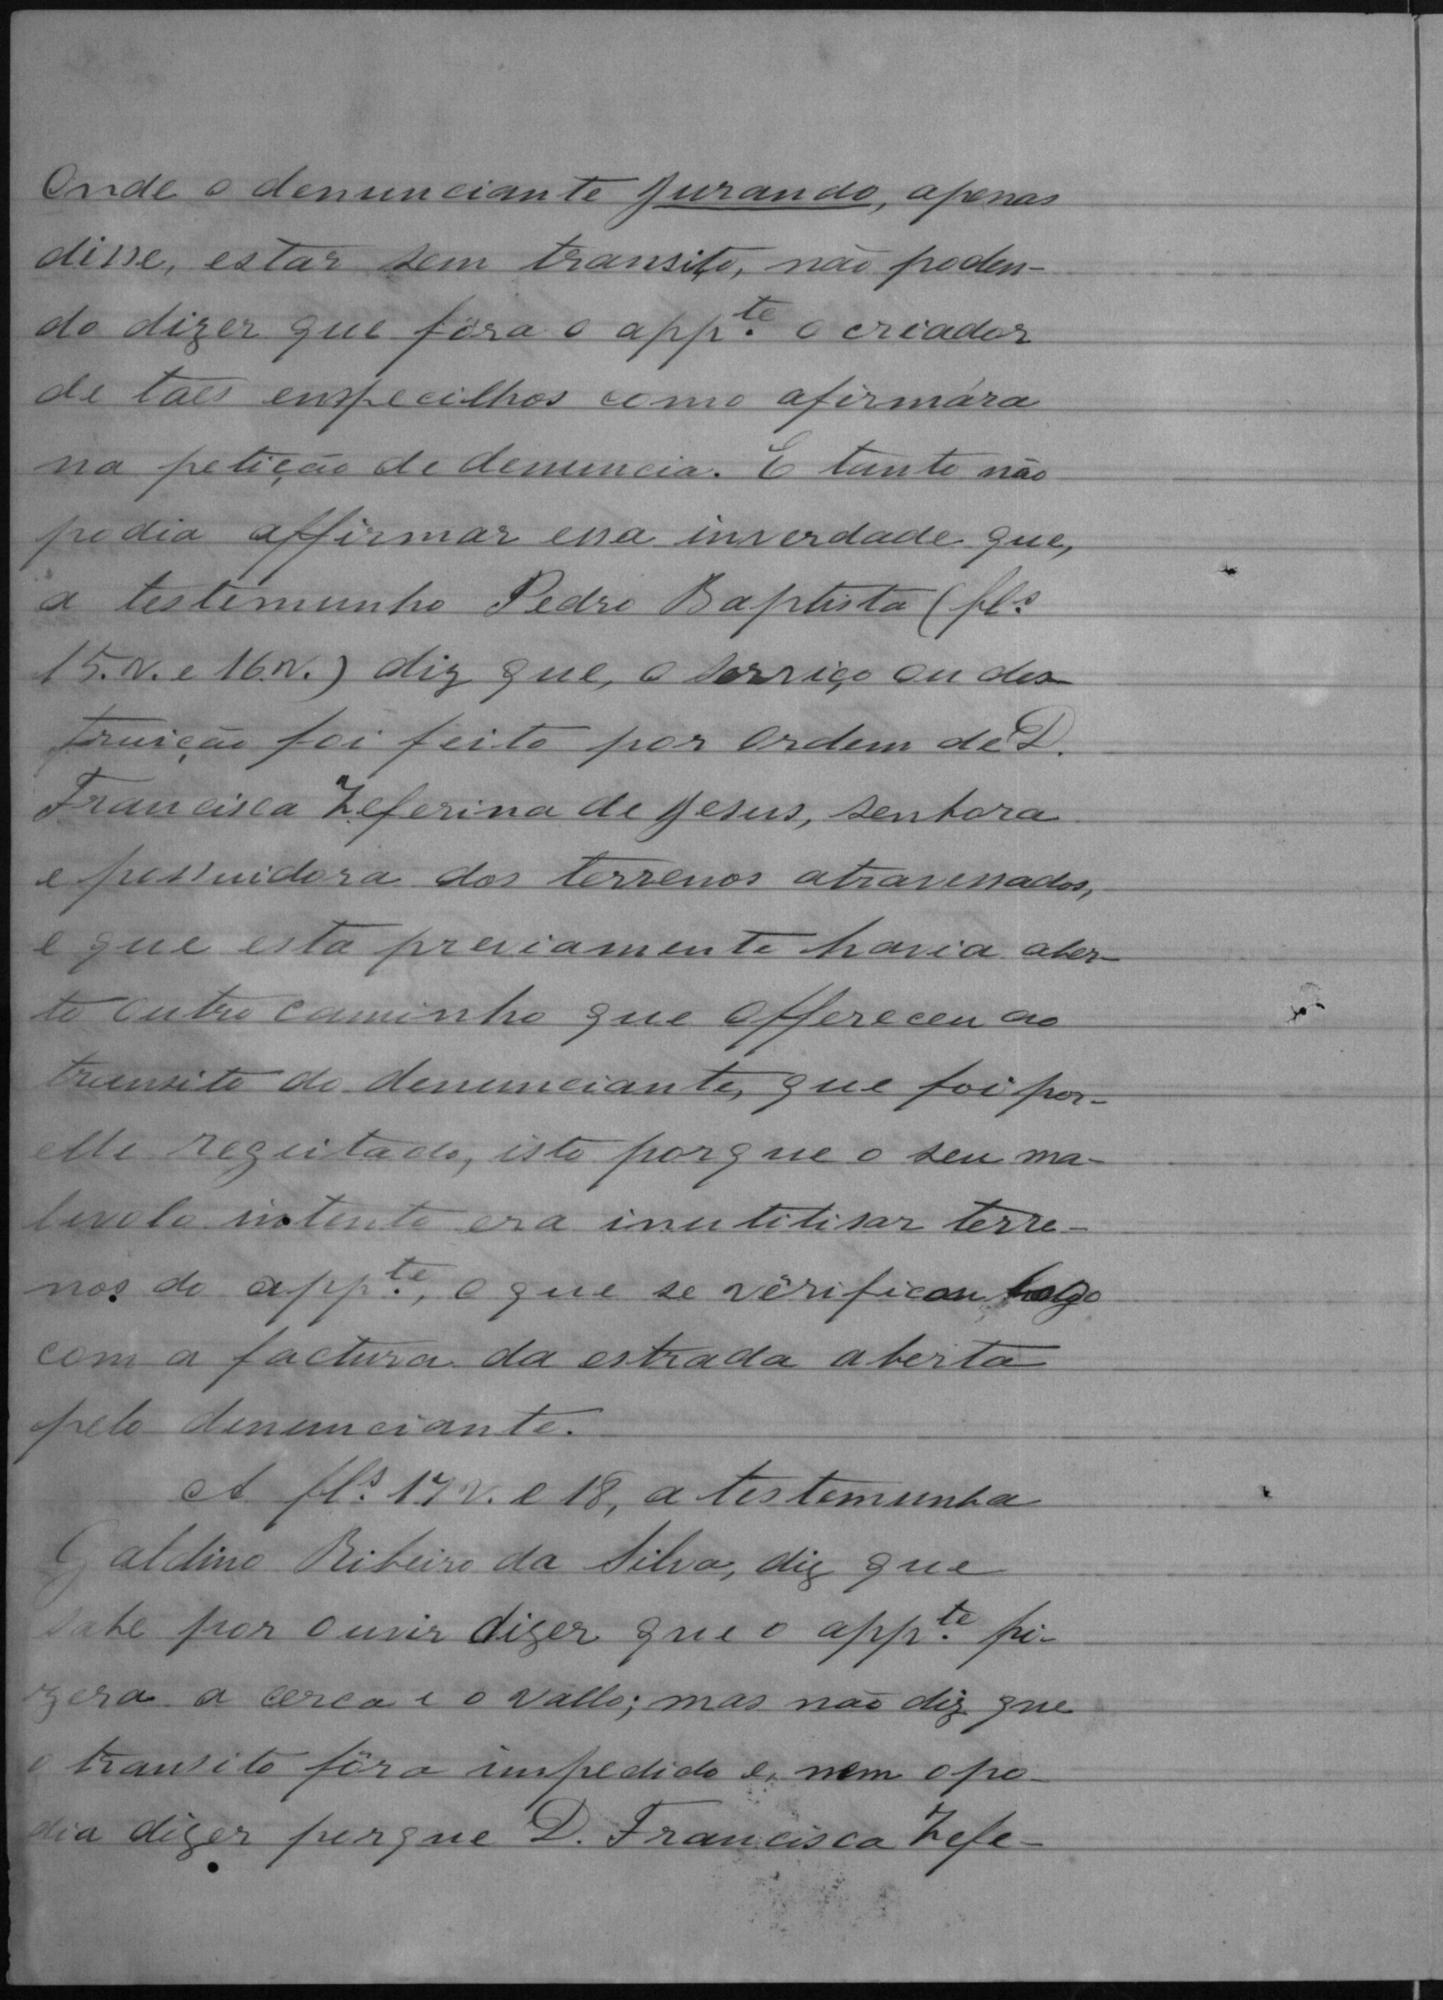 Onde o denunciante jurando, apenas
disse, estar sem transito, não poden-
do dizer que fôra o app.te o criador
de taes empecilhos como afirmára
na petição de denuncia. E tanto não
podia affirmar essa inverdade que,
a testemunho Pedro Baptista (fls.
15.v. e 16v.) diz que, o serviço ou des-
truição foi feito por ordem de D.
Francisca Zeferina de Jesus, senhora
e possuidora dos terrenos atravessados,
e que esta previamente havia aber-
to outro caminho que offereceu ao
transito do denunciante, que foi por-
elle regeitado, isto porque o seu ma-
levolo intento era inutilisar terre-
nos do app.te, o que se vêrificou logo
com a factura da estrada aberta
pelo denunciante.
A fls. 17v. e 18, a testemunha
Galdino Ribeiro da Silva, diz que
sabe por ouvir dizer que o app.te fi-
zera a cerca e o vallo; mas não diz que
o transito fôra impedido e, nem o po-
dia dizer porque D. Francisca Zefe-